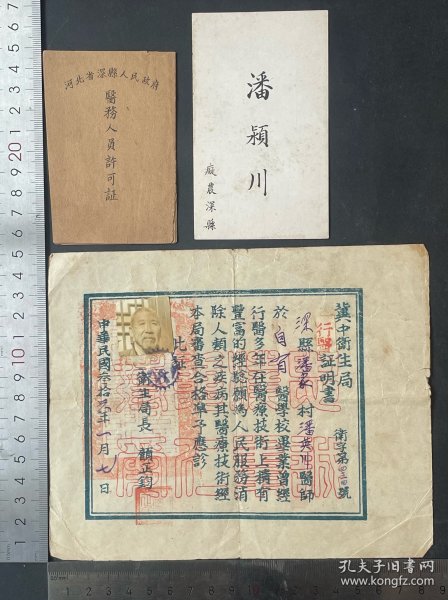 河北省深縣人民政府
醫務人員許可証
潘穎川
深縣
冀中衛生局
行醫証明書
衛字第
深縣潘
村潘英川醫師
於自有醫學校畢業曾經
行醫多年在醫療技術上擁有
豐富的經驗願為人民服務消
除人類之疾病其醫療技術經
本局審查合格準予應診
此証
衛生局長
顏正鈞
中華民國叁拾
年一月七日
孔夫子旧书网
www.kongfz.com